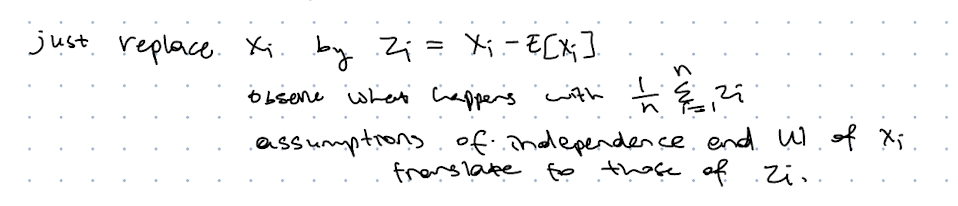 just replace Xi by Zi = Xi - E[Xi]
observe what happens with 1/n Σ_{i=1}^{n} Zi
assumptions of independence and UI of Xi
translate to those of Zi.